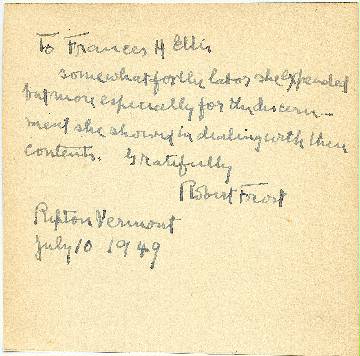 To Frances H Ellis
somewhat for the labor she expended
but more especially for the discern-
ment she showed in dealing with their
contents. Gratefully
Robert Frost
Ripton Vermont
July 10 1949